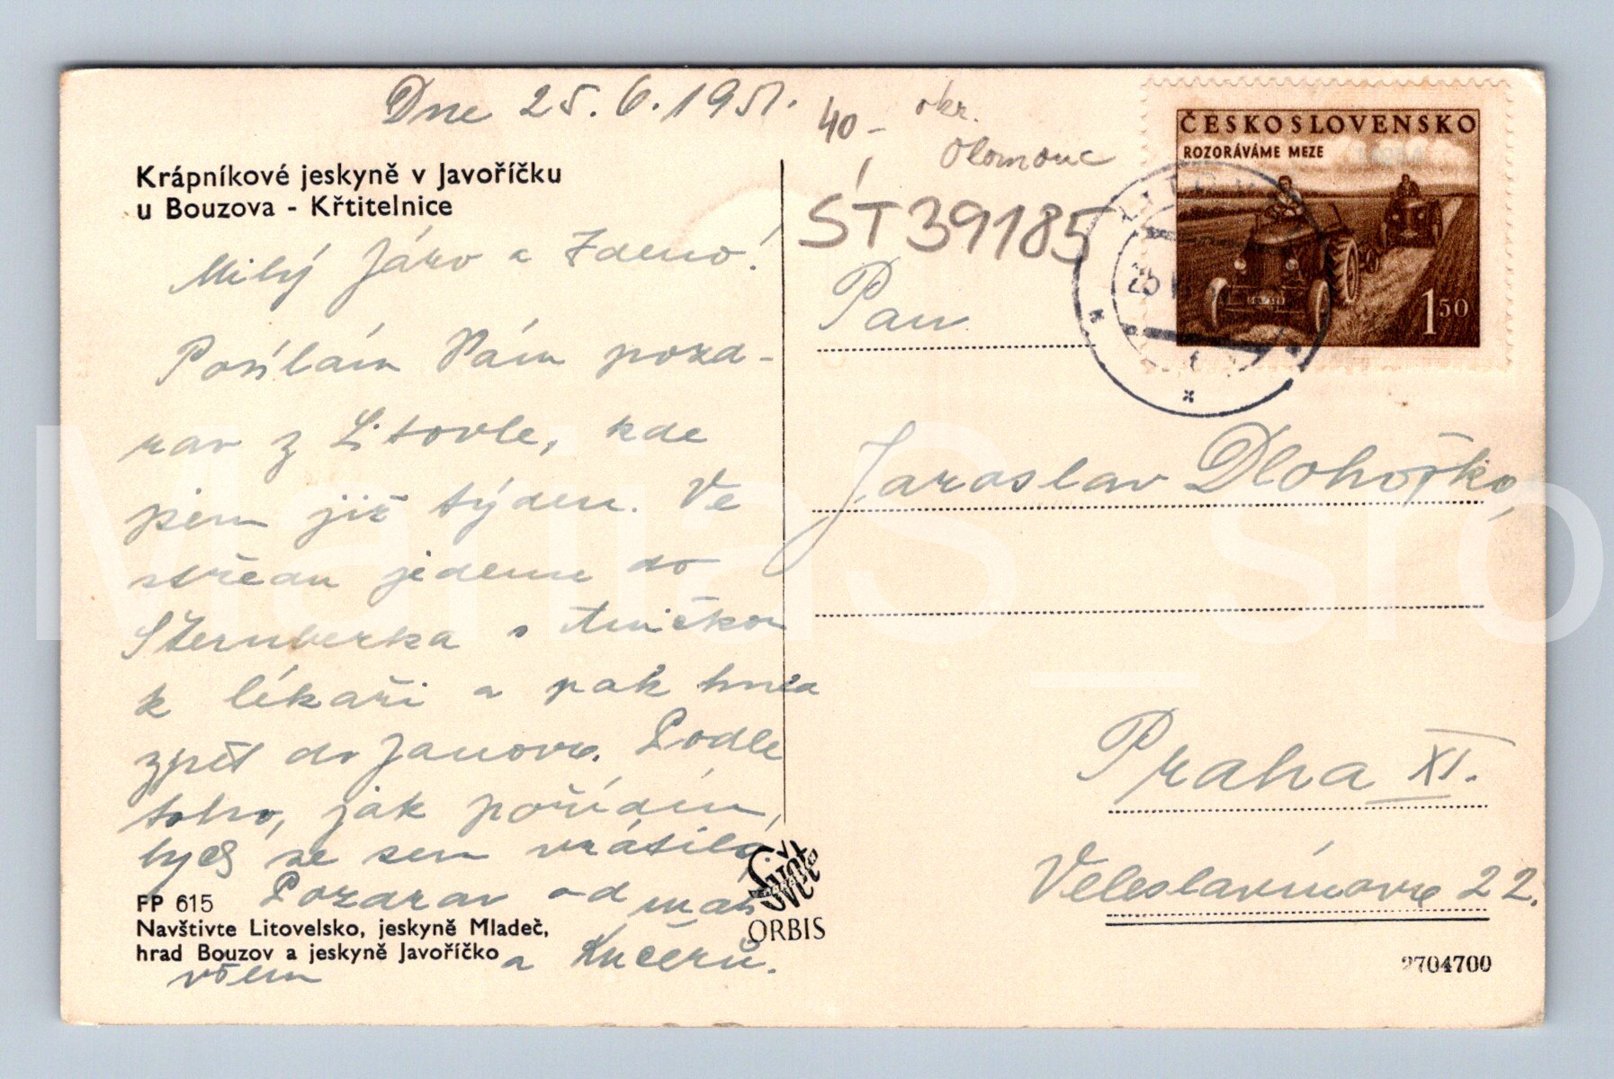 Dne 25.6.1951.
40,-
okr.
Olomouc
ST39185
ČESKOSLOVENSKO
ROZORÁVÁME MEZE
1 50
Krápníkové jeskyně v Javoříčku
u Bouzova - Křtitelnice
Milý Járo a Zdeno!
Posílám Vám pozd-
rav z Litovle, kde
jsem již týden. Ve
středu jedeme do
Šternberka s Aničkou
k lékaři a pak hned
zpět do Janova. Podle
toho, jak pořídím,
bych se sem vrátila
Pozdrav od
všem a Kučerů.
FP 615
Navštivte Litovelsko, jeskyně Mladeč,
hrad Bouzov a jeskyně Javoříčko
Svět
ORBIS
Pan
Jaroslav Dlohoška,
Praha XI.
Veleslavínova 22.
2704700